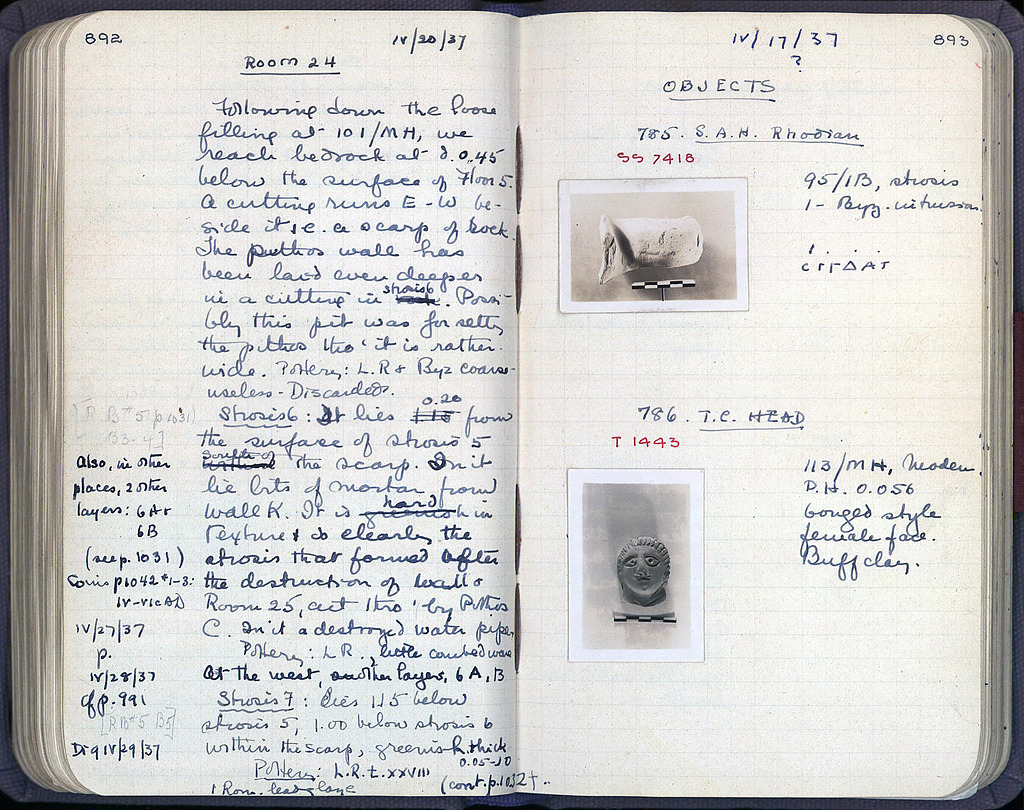 892
IV/20/37
ROOM 24
Following down the loose
filling at 101/MH, we
reach bedrock at d. 0.45
below the surface of Floor 5.
A cutting runs E-W be-
side it, i.e. a scarp of rock.
The pithos wall has
been laid even deeper
in a cutting in strosis 6. Possi-
bly this pit was for setting
the pithos tho' it is rather
wide. Pottery: L.R & Byz coarse
useless - Discarded.
Strosis 6: It lies 0.20 from
the surface of strosis 5
South of the scarp. In it
lie bits of mortar from
Wall K. It is hard in
texture & is clearly the
strosis that formed after
the destruction of walls
Room 25, cut thro' by Pithos
C. In it a destroyed water pipe,
Pottery: L R., little combed ware
At the west, another layer, 6A, B
Strosis 7: Lies 1.15 below
strosis 5, 1.00 below strosis 6
within the scarp, greenish, thick
0.05-10
Pottery: L.R. L. XXVIII
1 Rom. lead glaze
(cont. p. 1032 f..
[R B#5 (p 1031)
B3-4]
Also, in other
places, 2 other
layers: 6A &
6B
(see p. 1031)
Coins p 1042 #1-3:
IV-VI c AD
IV/27/37
p.
IV/28/37
cf p. 991
[RB#5 B5]
Dig IV/29/37
IV/17/37
?
893
OBJECTS
785. S.A.H. Rhodian
SS 7418
95/IB, strosis
1 - Byz. intrusion.
786. T.C. HEAD
T 1443
113/MH, Modern.
P.H. 0.056
female face.
Buff clay.